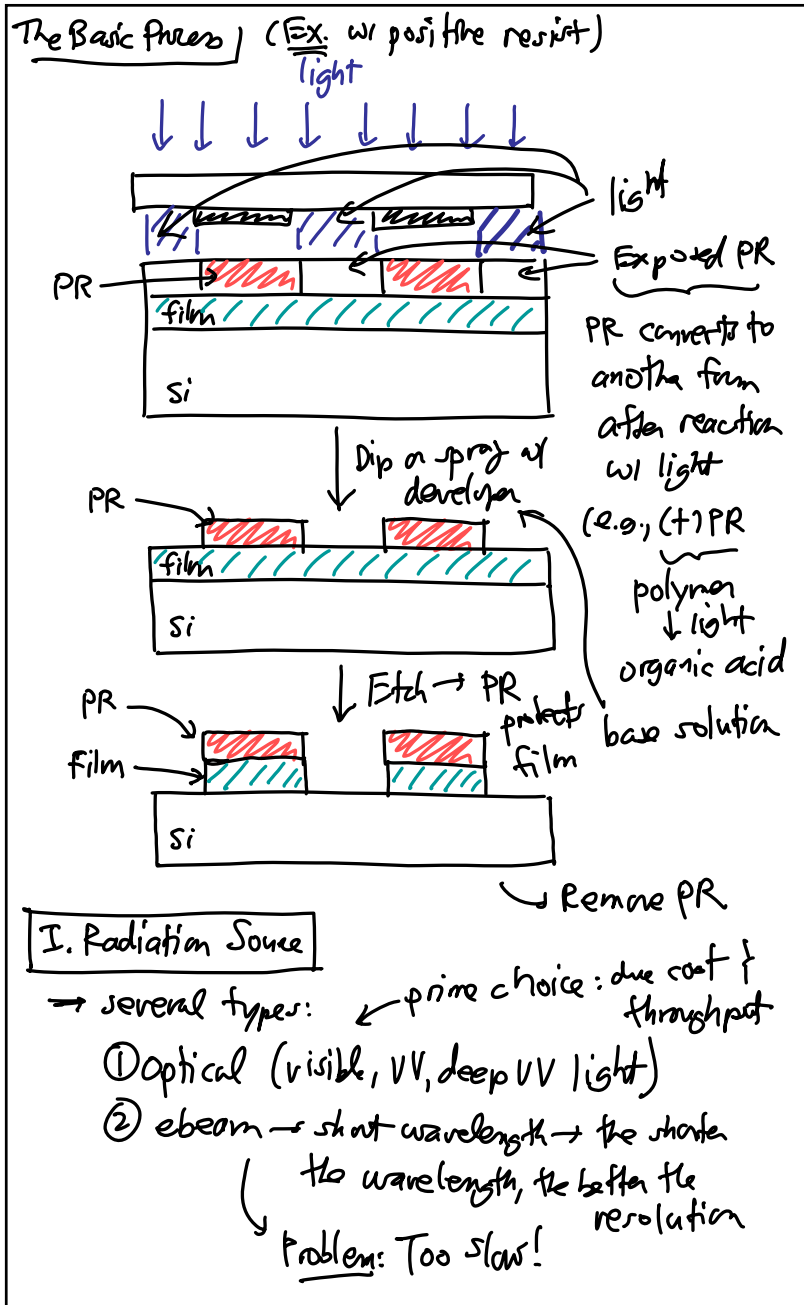 The Basic Process (Ex. w/ positive resist)
light
light
PR
Exposed PR
film
Si
PR converts to
another form
after reaction
w/ light
(e.g., (+) PR
polymer
↓ light
organic acid
Dip or spray w/
developer
base solution
PR
film
Si
Etch → PR
protects
film
PR
Film
Si
Remove PR
I. Radiation Source
→ several types:
prime choice: due cost }
throughput
① Optical (visible, UV, deep UV light)
② ebeam → short wavelength → the shorter
the wavelength, the better the
resolution
Problem: Too slow!